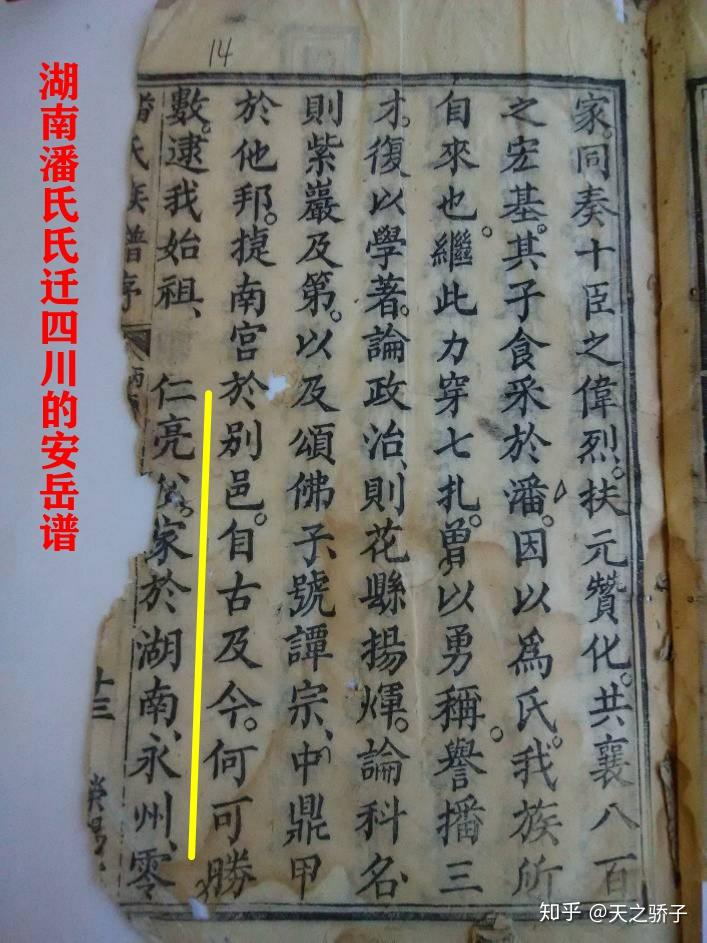 14
湖南潘氏氏迁四川的安岳谱
家。同奏十臣之偉烈。扶元贊化。共襄八百
之宏基。其子食采於潘。因以爲氏。我族所
自來也。繼此力穿七扎。曾以勇稱。譽播三
才。復以學著。論政治、則花縣揚煇。論科名
則紫巖及第。以及頌佛子、號譚宗、中鼎甲
於他邦。捷南宮於别邑。自古及今。何可勝
數。逮我始祖、仁亮公。家於湖南、永州、零
潘氏族譜序
十三
知乎 @天之骄子